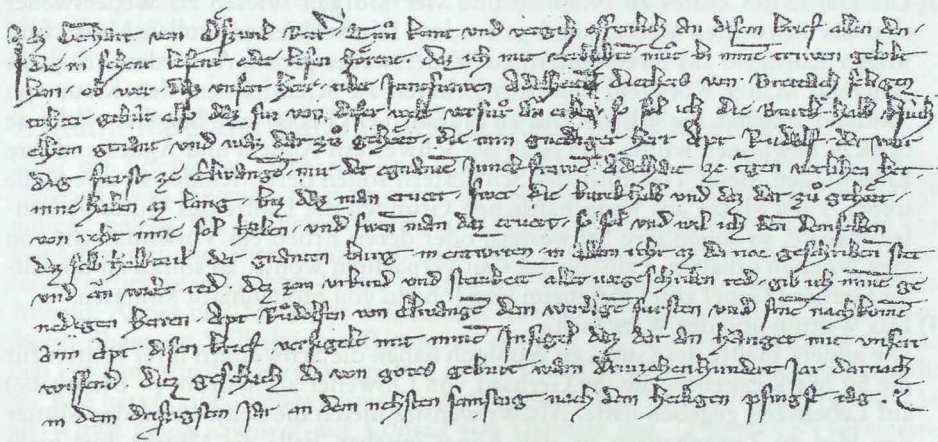 Ich Gerhart von vnd vergih offenlich an disem brief allen den
die in sehent lesent oder hören lesen daz ich mit min trüwen gelobt
han ob wer daz vnser herr über Junfrawen Adelheit Diethers von Bretach seligen
tohter gebüt also daz sin von diser welt verfür an erben so sol ich die Burk halb
genant vnd waz dar zů gehört die min gnediger herr Apt Růdolff der wir
dig fürst ze Elwangen mit der genanten Junckfrawen Adelhait ze verlihen het
inne haben als lang biz daz man ervert swer die burk halb vnd daz dar zů gehört
von reht inne sol haben vnd swen man daz ervert so sol vnd wil ich dem denselben
daz selb halbteil der genanten burg in entwürten in allem reht als da vor geschriben stet
vnd an wider red dez zem vrkund vnd stetikeit aller vorgeschriben red gib ich minem ge
nedigen herren Apt Růdolffen von Elwangen dem werdigen fürsten vnd sinen nachkomen
disen brief versigelt mit minem Insigel daz dar an hanget mit vnser
wissend diez geschach do von gotes geburt warn driuzehenhundert Jar darnach
in dem drisigsten Jar an dem nehsten samstag nach dem heiligen pfingst tag